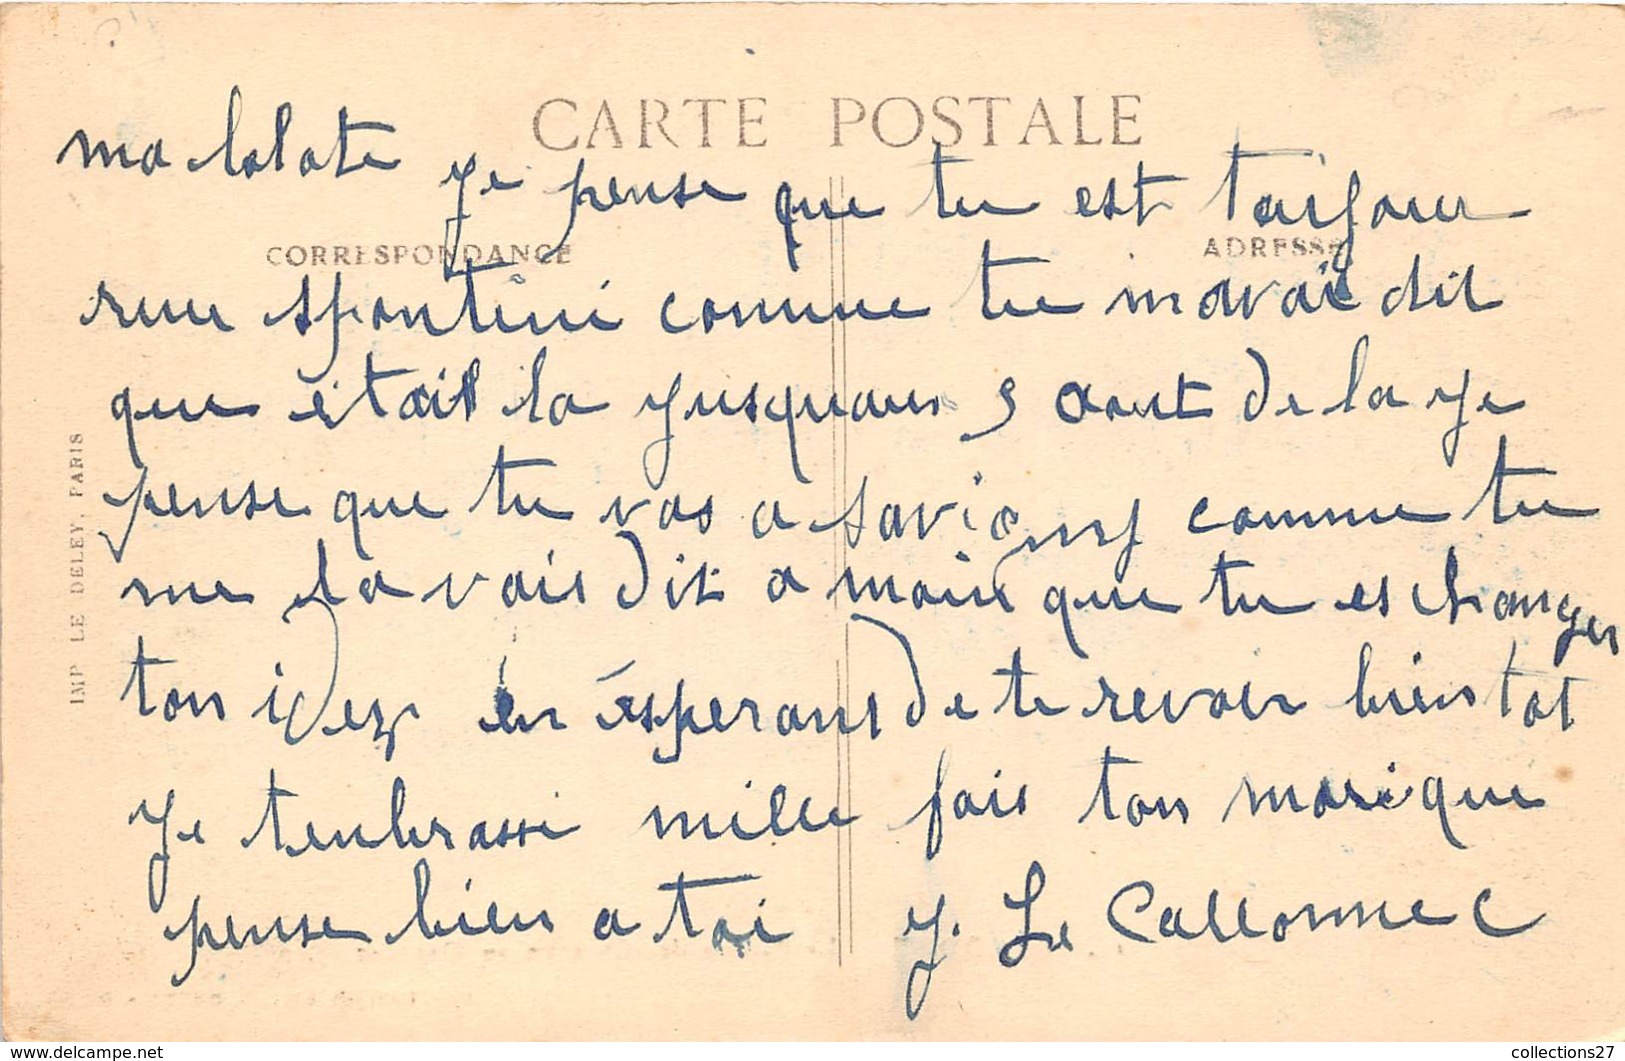 CARTE POSTALE
ma lolote je pense que tu est toujour
CORRESPONDANCE
ADRESSE
rue spontini comme tu mavai dit
que etait la jusquaus 3 aout de la je
pense que tu vas a savigny comme tu
me la vais dit a moins que tu es changer
ton idez en ésperans de te revoir bientot
je tenbrasse mille fois ton mari que
pense bien a toi J. Le Callonnec
IMP LE DELEY, PARIS
https://www.delcampe.net
collections27